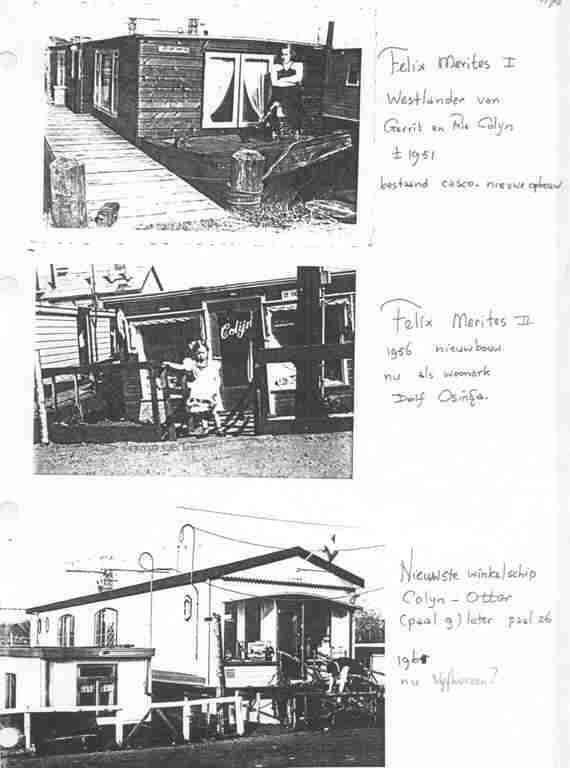 Felix Merites I
Westlander van
Gerrit en Colyn
± 1951
bestaand casco. nieuwe opbouw
Colijn
Felix Merites II
1956 nieuwbouw
nu als woonark
Dolf Osinga.
Nieuwste winkelschip
Colyn - Otter
(paal 9) later paal 26
nu